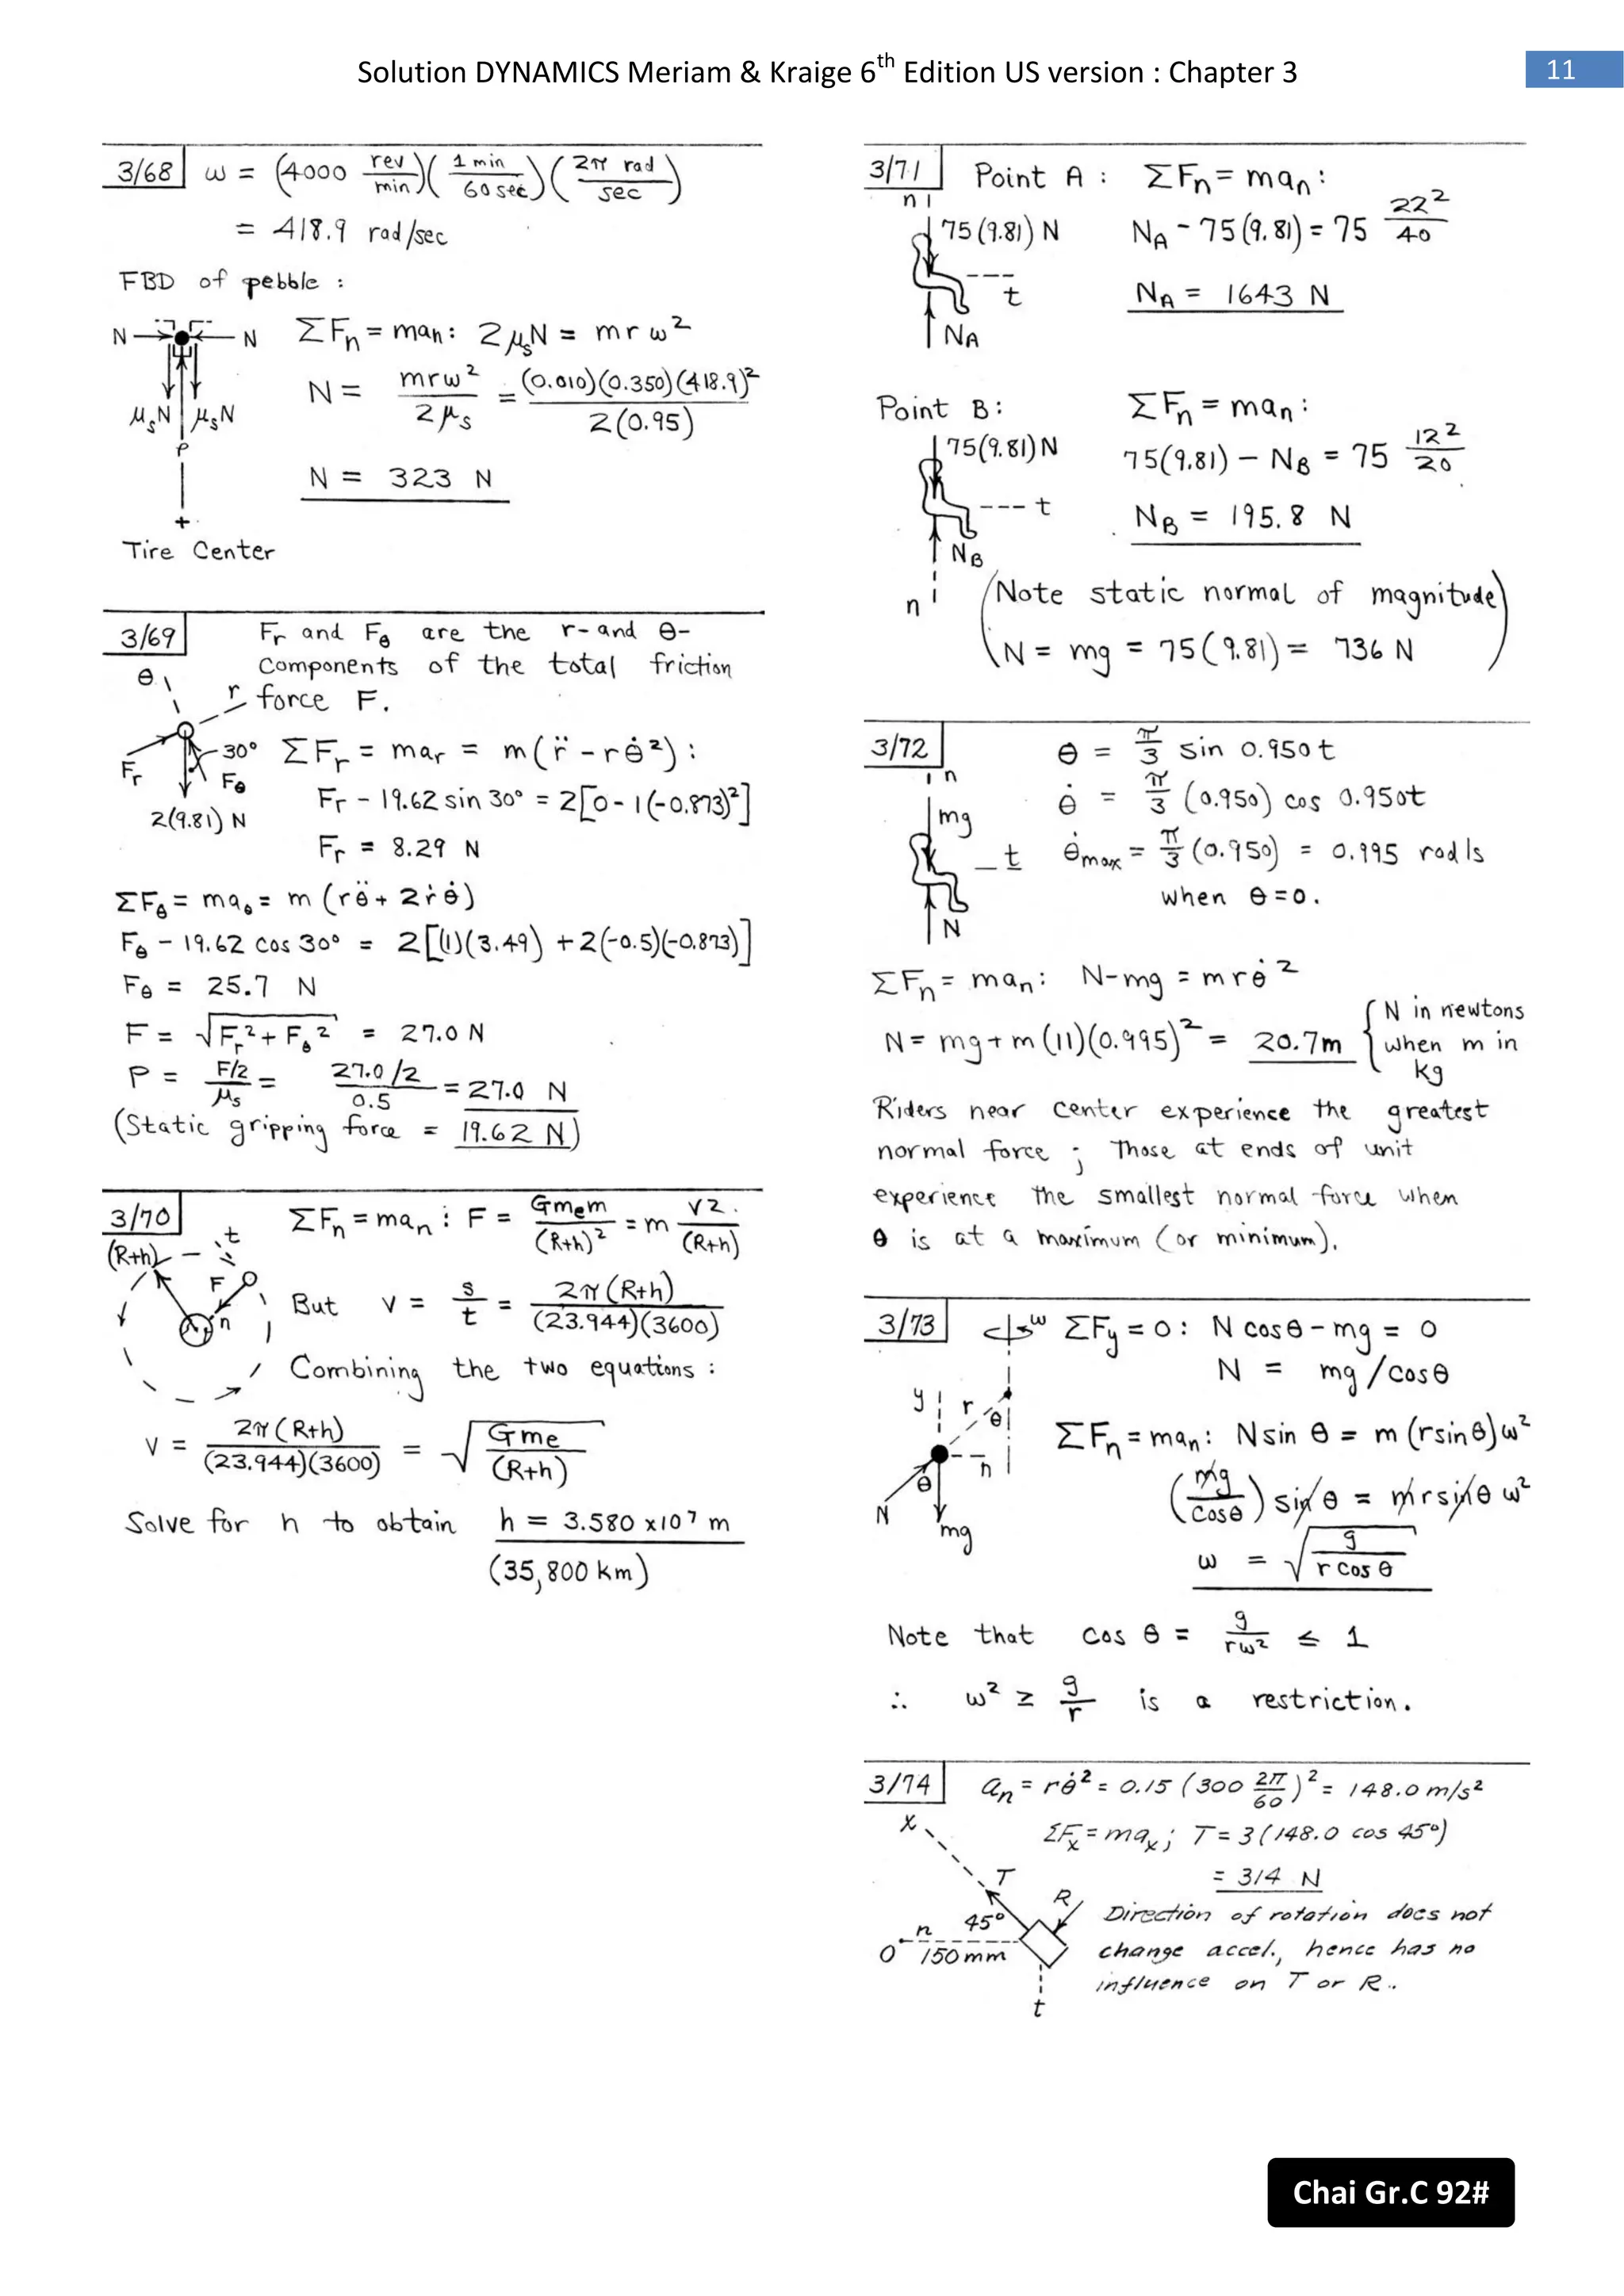 Solution DYNAMICS Meriam & Kraige 6th Edition US version : Chapter 3
11
3/68 ω = (4000 rev/min)(1 min/60 sec)(2π rad/sec)
= 418.9 rad/sec
FBD of pebble :
N N ΣFn = man: 2μsN = mrω²
N = mrω²/2μs = (0.010)(0.350)(418.9)²/2(0.95)
μsN μsN
P
N = 323 N
+
Tire Center
3/69 Fr and Fθ are the r- and θ-
components of the total friction
force F.
θ r
Fr 30° Fθ
2(9.81) N
ΣFr = mar = m(r̈ - rθ̇²) :
Fr - 19.62 sin 30° = 2[0 - 1(-0.873)²]
Fr = 8.29 N
ΣFθ = maθ = m (rθ̈ + 2ṙθ̇)
Fθ - 19.62 cos 30° = 2[(1)(3.49) + 2(-0.5)(-0.873)]
Fθ = 25.7 N
F = √(Fr² + Fθ²) = 27.0 N
P = F/2/μs = 27.0/2/0.5 = 27.0 N
(Static gripping force = 19.62 N)
3/70 ΣFn = man : F = Gmem/(R+h)² = m v2./(R+h)
(R+h) t
F n
But v = s/t = 2π(R+h)/(23.944)(3600)
Combining the two equations :
v = 2π(R+h)/(23.944)(3600) = √(Gme/(R+h))
Solve for h to obtain h = 3.580 x10⁷ m
(35,800 km)
3/71 Point A : ΣFn = man :
n
75(9.81) N NA - 75(9.81) = 75 22²/40
t
NA = 1643 N
NA
Point B: ΣFn = man :
75(9.81) N 75(9.81) - NB = 75 12²/20
t
NB = 195.8 N
NB
n
(Note static normal of magnitude
N = mg = 75(9.81) = 736 N)
3/72 θ = π/3 sin 0.950t
n
θ̇ = π/3 (0.950) cos 0.950t
mg
t θ̇max = π/3 (0.950) = 0.995 rad/s
when θ = 0.
N
ΣFn = man: N-mg = mrθ̇²
N = mg + m(11)(0.995)² = 20.7m {N in newtons
when m in
kg
Riders near center experience the greatest
normal force ; Those at ends of unit
experience the smallest normal force when
θ is at a maximum (or minimum).
3/73 ω ΣFy = 0 : N cosθ - mg = 0
N = mg/cosθ
y r θ
n
θ
N
mg
ΣFn = man: N sin θ = m (r sinθ)ω²
(mg/cosθ) sin θ = mr sinθ ω²
ω = √(g/r cos θ)
Note that cos θ = g/rω² ≤ 1
∴ ω² ≥ g/r is a restriction.
3/74 an = rθ̇² = 0.15 (300 2π/60)² = 148.0 m/s²
x
ΣFx = max ; T = 3(148.0 cos 45°)
= 314 N
T R
45°
n
O 150 mm
t
Direction of rotation does not
change accel., hence has no
influence on T or R..
Chai Gr.C 92#